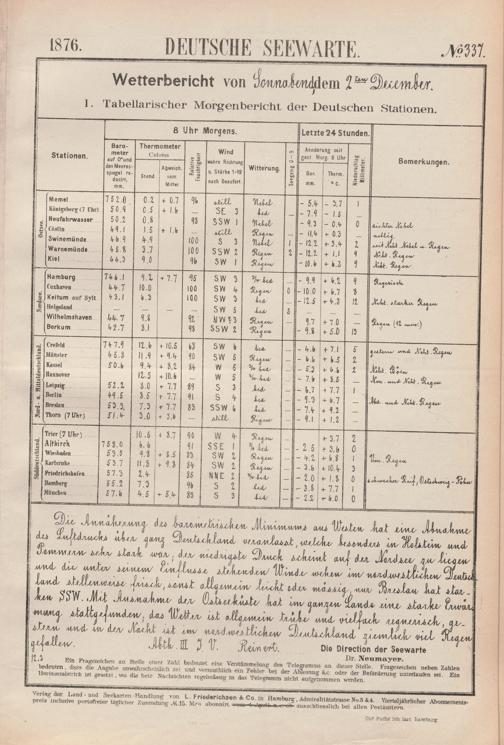 1876. DEUTSCHE SEEWARTE. No 337.
Wetterbericht von Sonnabend, dem 2ten December.
I. Tabellarischer Morgenbericht der Deutschen Stationen.
8 Uhr Morgens. Letzte 24 Stunden.
Stationen. Barometer auf 0° und den Meeresspiegel reducirt, mm. Thermometer Celsius Stand Abweich. vom Mittel Relative Feuchtigkeit Wind wahre Richtung u. Stärke 1-12 nach Beaufort. Witterung. Seegang 0-9 Aenderung seit gest. Morg. 8 Uhr Bar. mm. Therm. °C. Niederschlag Millimeter. Bemerkungen.
Ostsee.
Memel 752.0 0.2 + 0.7 96 still Nebel - 5.4 - 3.7 1
Königsberg (7 Uhr) 50.9 0.5 + 1.6 SE 3 bed. - 7.9 - 1.5
Neufahrwasser 50.2 0.8 93 SSW 1 Nebel - 9.3 - 0.4 0
Cöslin 49.1 1.5 + 1.6 still Regen - 11.4 - 0.3
Swinemünde 46.9 4.9 100 S 3 Nebel 1 - 12.2 + 3.4 2
Warnemünde 45.8 3.7 100 SSW 2 Regen 2 - 12.2 + 1.1 9 Ncht. Regen
Kiel 44.3 9.0 96 SW 1 Regen - 10.4 + 6.3 9 Ncht. Regen
Nordsee.
Hamburg 746.1 9.2 + 7.7 95 SW 3 bed. - 9.9 + 4.2 9 Regnerisch
Cuxhaven 44.7 10.0 100 SW 4 Regen 0 - 10.0 + 6.7 8
Keitum auf Sylt 43.1 6.3 100 SW 3 bed. - 12.5 + 4.3 12 Nchts. starker Regen
Helgoland — — SW 5
Wilhelmshaven 44.7 9.8 92 bed. - 9.7 + 7.0
Borkum 42.7 3.1 SSW 2 Regen - 9.8 + 5.0 13
Nord- u. Mitteldeutschland.
Crefeld 747.9 12.6 + 10.5 63 SW 6 bed. - 4.6 + 7.1 5
Münster 45.3 11.9 + 9.4 90 SW 5
Kassel 50.6 9.4 + 3.2 84 W 5
Hannover 12.5 + 10.6 W 5
Leipzig 52.2 3.0 + 7.7 89 S 3 bed. - 6.7 + 7.7 1
Berlin 49.5 3.5 + 7.7 91 S 4 bed. - 9.3 + 4.7
Breslau 53.3 7.3 + 7.7 83 SSW 6 bed. - 7.4 + 9.2
Thorn (7 Uhr) 51.4 3.0 + 3.4 still Regen - 9.1 + 1.2
Süddeutschland.
Trier (7 Uhr) 10.6 + 3.7 90 W 4 Regen + 3.7 2
Altkirch 753.0 6.6 91 SSE 1
Wiesbaden 53.5 9.8 + 8.5 83 SW 2
Karlsruhe 53.7 11.3 + 9.8 84 SW 2 Regen - 3.6 + 10.4 3
Friedrichshafen 54.3 2.4 85 NNE 2
Bamberg 55.2 7.3 96 S 2 bed. - 3.5 + 7.7 1
München 57.6 4.5 + 5.4 83 S 3 bed. - 2.2 + 4.0 0
Die Annäherung des barometrischen Minimums aus Westen hat eine Abnahme
des Luftdrucks über ganz Deutschland veranlasst, welche besonders in Holstein und
Pommern sehr stark war, der niedrigste Druck scheint auf der Nordsee zu liegen
und die unter seinem Einflusse stehenden Winde wehen im nordwestlichen Deutsch-
land stellenweise frisch, sonst allgemein leicht oder mässig, nur Breslau hat star-
ken SSW. Mit Ausnahme der Ostseeküste hat im ganzen Lande eine starke Erwär-
mung stattgefunden; das Wetter ist allgemein trübe und vielfach regnerisch, ge-
stern und in der Nacht ist im nordwestlichen Deutschland ziemlich viel Regen
gefallen. Abth. III J. V. Reinort. Die Direction der Seewarte
Dr. Neumayer.
Ein Fragezeichen an Stelle einer Zahl bedeutet eine Verstümmelung des Telegramms an dieser Stelle. Fragezeichen neben Zahlen
bedeuten, dass die Angabe unwahrscheinlich ist und vermuthlich ein Fehler bei der Ablesung &c. oder der Beförderung unterlaufen ist. Ein
Horizontalstrich ist gesetzt, wo die betr. Nachrichten regelmässig in das Telegramm nicht aufgenommen werden.
Verlag der Land- und Seekarten-Handlung von L. Friederichsen & Co. in Hamburg, Admiralitätsstrasse No 3 & 4. Vierteljährlicher Abonnements-
preis inclusive portofreier täglicher Zusendung M. 15. Man abonnirt ausschliesslich bei allen Postämtern.
Gbr Fuchs lith Inst Hamburg